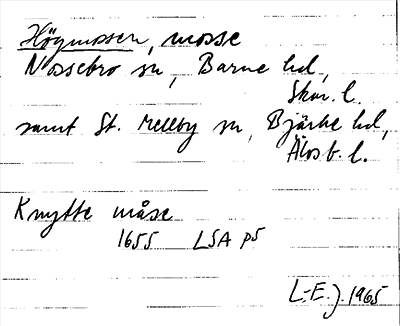 Högmossen, mosse
Nossebro sn, Barne hd,
Skar. l.
samt St. Mellby sn, Bjärke hd,
Älvsb. l.
Knytte måse
1655 LSA P5
L-E. J. 1965